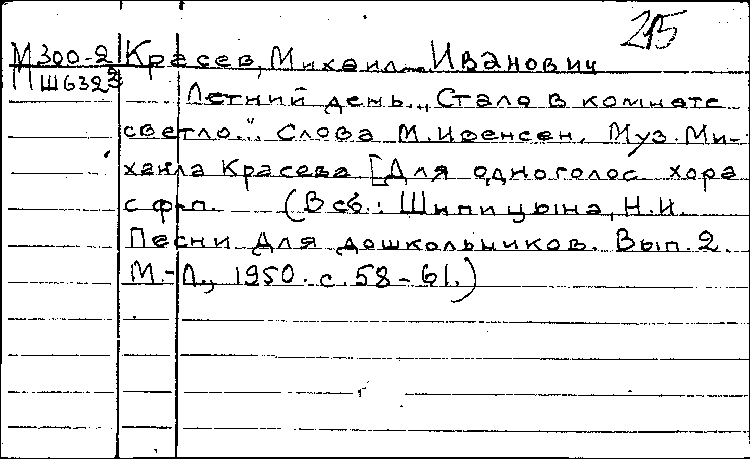 215
М300-2 Красев, Михаил Иванович
Ш632
Летний день. „Стало в комнате
светло..." Слова М. Ивенсен. Муз. Ми-
хаила Красева [Для одноголос. хора
с ф-п. (В сб.: Шипицына, Н.И.
Песни для дошкольников. Вып. 2.
М.-Л., 1950. с. 58-61.)